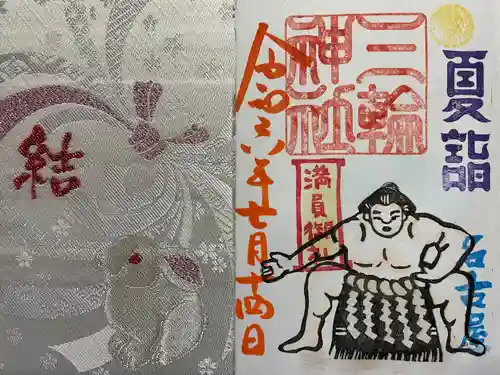 夏詣
三輪
神社
満員御礼
令和六年七月十四日
名古屋
結